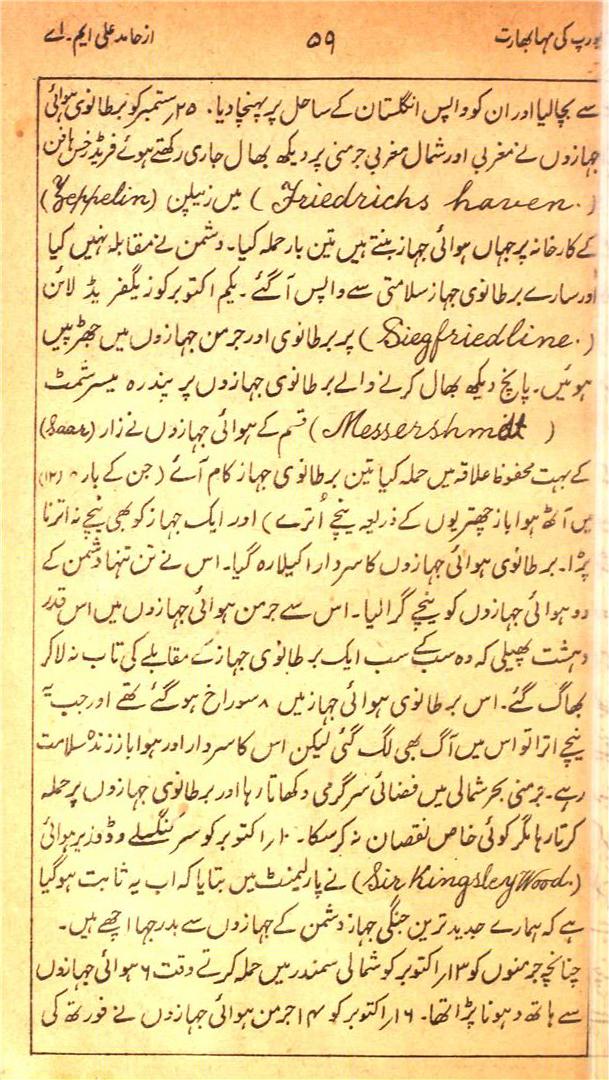 یورپ کی مہابھارت ۵۹ از حامد علی ایم۔اے
سے بچالیا اور ان کو واپس انگلستان کے ساحل پر پہنچا دیا۔ ۲۵ ستمبر کو برطانوی ہوائی
جہازوں نے مغربی اور شمال مغربی جرمنی پر دیکھ بھال جاری رکھتے ہوئے فریڈرخس ہافن
(Friedrichs haven.) میں زیپلن (Zeppelin)
کے کارخانہ پر جہاں ہوائی جہاز بنتے ہیں تین بار حملہ کیا۔ دشمن نے مقابلہ نہیں کیا
اور سارے برطانوی جہاز سلامتی سے واپس آگئے۔ یکم اکتوبر کو زیگفریڈ لائن
(Siegfriedline.) پر برطانوی اور جرمن جہازوں میں جھڑپیں
ہوئیں۔ پانچ دیکھ بھال کرنے والے برطانوی جہازوں پر پندرہ میسرشمٹ
(Messershmidt) قسم کے ہوائی جہازوں نے زار (Saar)
کے بہت محفوظ علاقہ میں حملہ کیا تین برطانوی جہاز کام آئے (جن کے بارہ (۱۲)
میں آٹھ ہوا باز چھتریوں کے ذریعہ نیچے اُترے) اور ایک جہاز کو بھی نیچے نہ اترنا
پڑا۔ برطانوی ہوائی جہازوں کا سردار اکیلا رہ گیا۔ اس نے تن تنہا دشمن کے
دو ہوائی جہازوں کو نیچے گرالیا۔ اس سے جرمن ہوائی جہازوں میں اس قدر
دہشت پھیلی کہ وہ سب کے سب ایک برطانوی جہاز کے مقابلے کی تاب نہ لاکر
بھاگ گئے۔ اس برطانوی ہوائی جہاز میں ۸۰ سوراخ ہو گئے تھے اور جب یہ
نیچے اترا تو اس میں آگ بھی لگ گئی لیکن اس کا سردار اور ہوا باز زندہ سلامت
رہے۔ جرمنی بحر شمالی میں فضائی سرگرمی دکھاتا رہا اور برطانوی جہازوں پر حملہ
کرتا رہا مگر کوئی خاص نقصان نہ کرسکا۔ ۱۰ اکتوبر کو سر کنگسلے وڈ وزیر ہوائی
(Sir Kingsley Wood.) نے پارلیمنٹ میں بتایا کہ اب یہ ثابت ہوگیا
ہے کہ ہمارے جدید ترین جنگی جہاز دشمن کے جہازوں سے بدرجہا اچھے ہیں۔
چنانچہ جرمنوں کو ۱۳ اکتوبر کو شمالی سمندر میں حملہ کرتے وقت ۶ ہوائی جہازوں
سے ہاتھ دھونا پڑا تھا۔ ۱۶ اکتوبر کو ۱۴ جرمن ہوائی جہازوں نے فورتھ کی